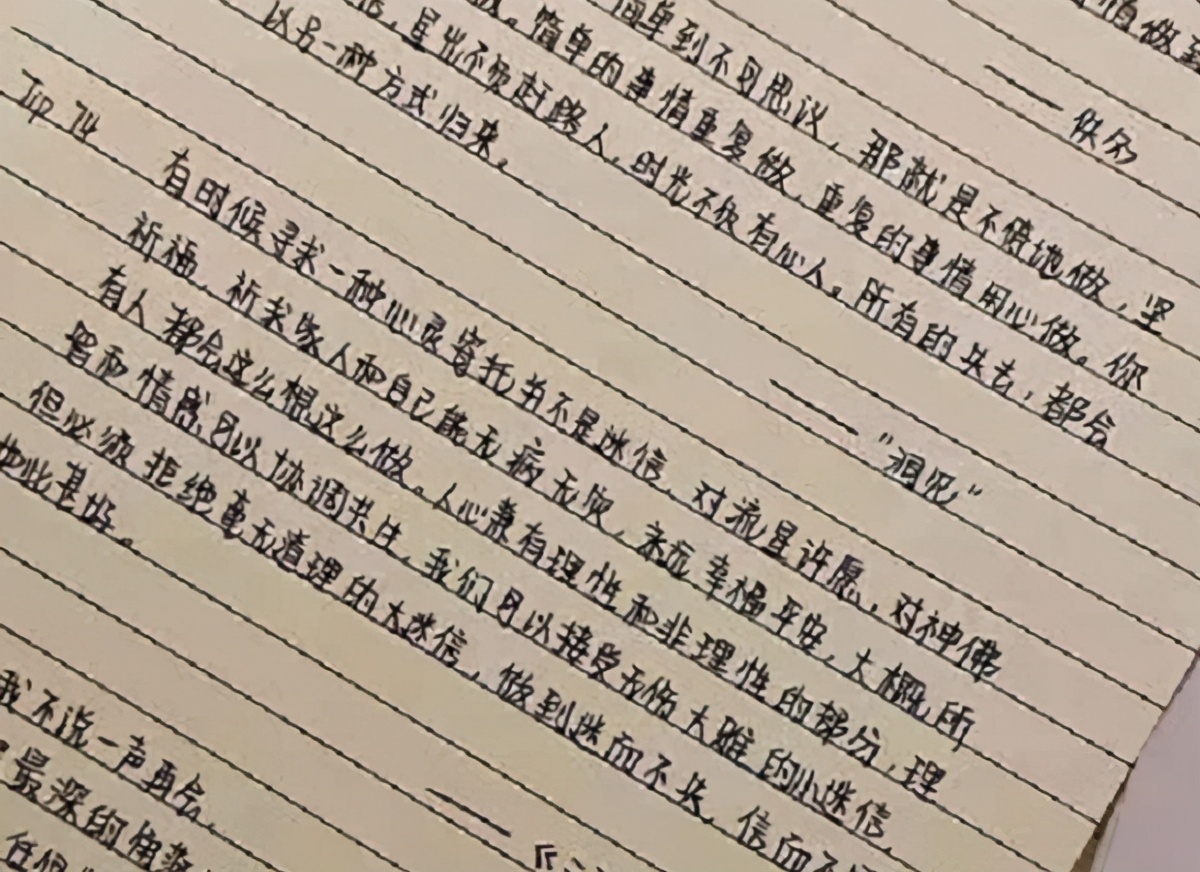 怕做到
—— 佚名
简单到不可思议，那就是不地做，坚
做。简单的事情重复做，重复的事情用心做。你
信，星光不负赶路人，时光不负有心人。所有的失去，都会
以另一种方式归来。
—— "洞见"
Top 74
有时候寻求一种心灵寄托并不是迷信，对流星许愿，对神佛
祈福，祈求家人和自己能无病无灾，永远幸福平安，大概所
有人都会这么想这么做。人心兼有理性和非理性的部分，理
智和情感可以协调共生，我们可以接受无伤大雅的小迷信，
但必须拒绝毫无道理的大迷信，做到迷而不失，信而不
如此甚好。
——《
我不说一声再会，
最深的角落